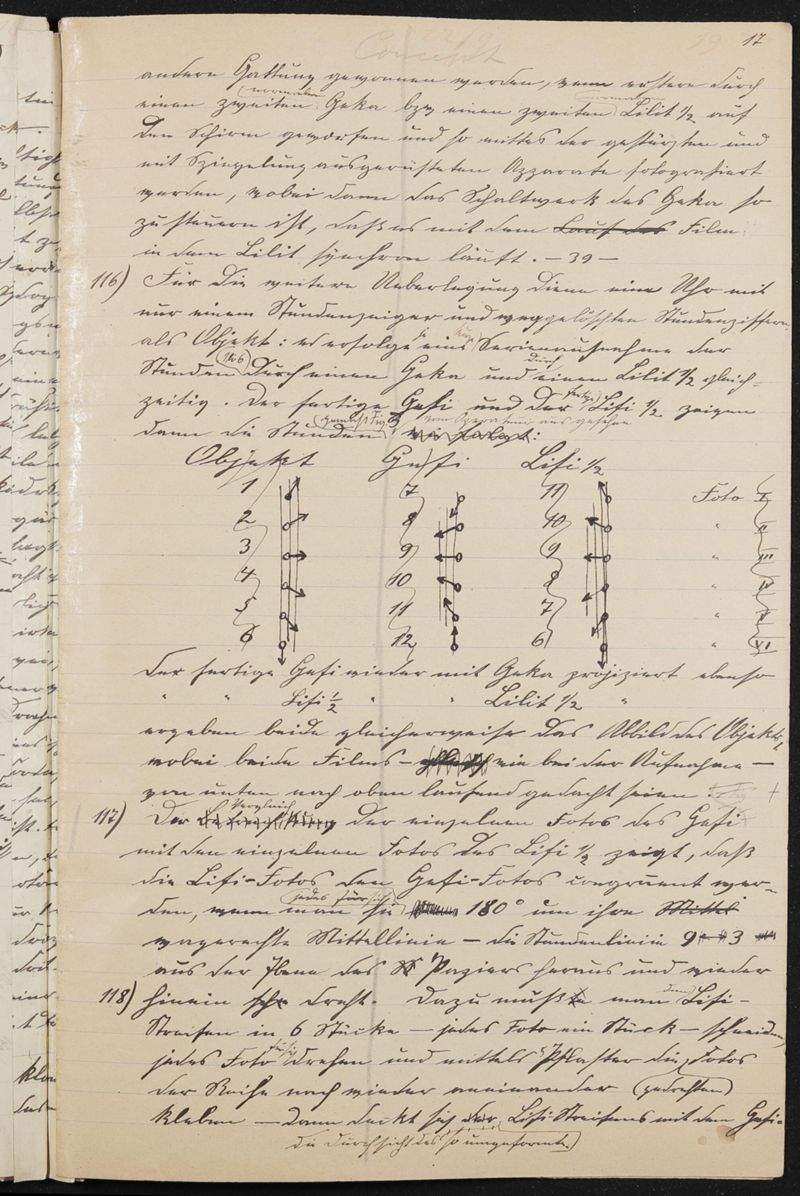 17
Concept
andere Gattung gewonnen werden, wenn erstere durch
einen zweiten (normalen) Geka bzw einen zweiten (normalen) Lilit 1/2 auf
den Schirm geworfen und so mittels der gestürzten und
mit Spiegelung ausgerüsteten Apparate fotografiert
werden, wobei dann das Schaltwerk des Geka so
zu steuern ist, daß es mit dem Lauf des Film
in dem Lilit synchron läuft. – 39 –
116) Für die weitere Ueberlegung diene eine Uhr mit
nur einem Stundenzeiger und weggelöschten Stundenziffern
als Objekt: es erfolge eine Serienaufnahme der
Stunden (1–6) durch einen Geka und durch einen Lilit 1/2 gleich-
zeitig. Der fertige Gefi und der fertige Lifi 1/2 zeigen
dann die Stunden von Operateur aus gesehen:
Objekt Gefi Lifi 1/2
1 7 11 Foto I
2 8 10 " II
3 9 9 " III
4 10 8 " IV
5 11 7 " V
6 12 6 " VI
Der fertige Gefi wieder mit Geka projiziert ebenso
" " Lifi 1/2 " " Lilit 1/2 "
ergeben beide gleicherweise das Abbild des Objekts,
wobei beide Films – wie bei der Aufnahme –
von unten nach oben laufend gedacht seien
117) Der Vergleich der einzelnen Fotos des Gefi
mit den einzelnen Fotos des Lifi 1/2 zeigt, daß
die Lifi-Fotos den Gefi-Fotos congruent wer-
den, wenn man sie (jedes für sich) 180° um ihre Mittel
wagerechte Mittellinie – die Stundenlinie 9 – 3
aus der Ebene des Papiers heraus und wieder
118) hinein dreht. Dazu muß man den Lifi-
Streifen in 6 Stücke – jedes Foto ein Stück – schneiden,
jedes Foto drehen und mittels Pflaster die Fotos
der Reihe nach wieder aneinander (gedrehten)
kleben – dann deckt sich der Lifi Streifens mit dem Gefi-
die Durchsicht des so umgeformten